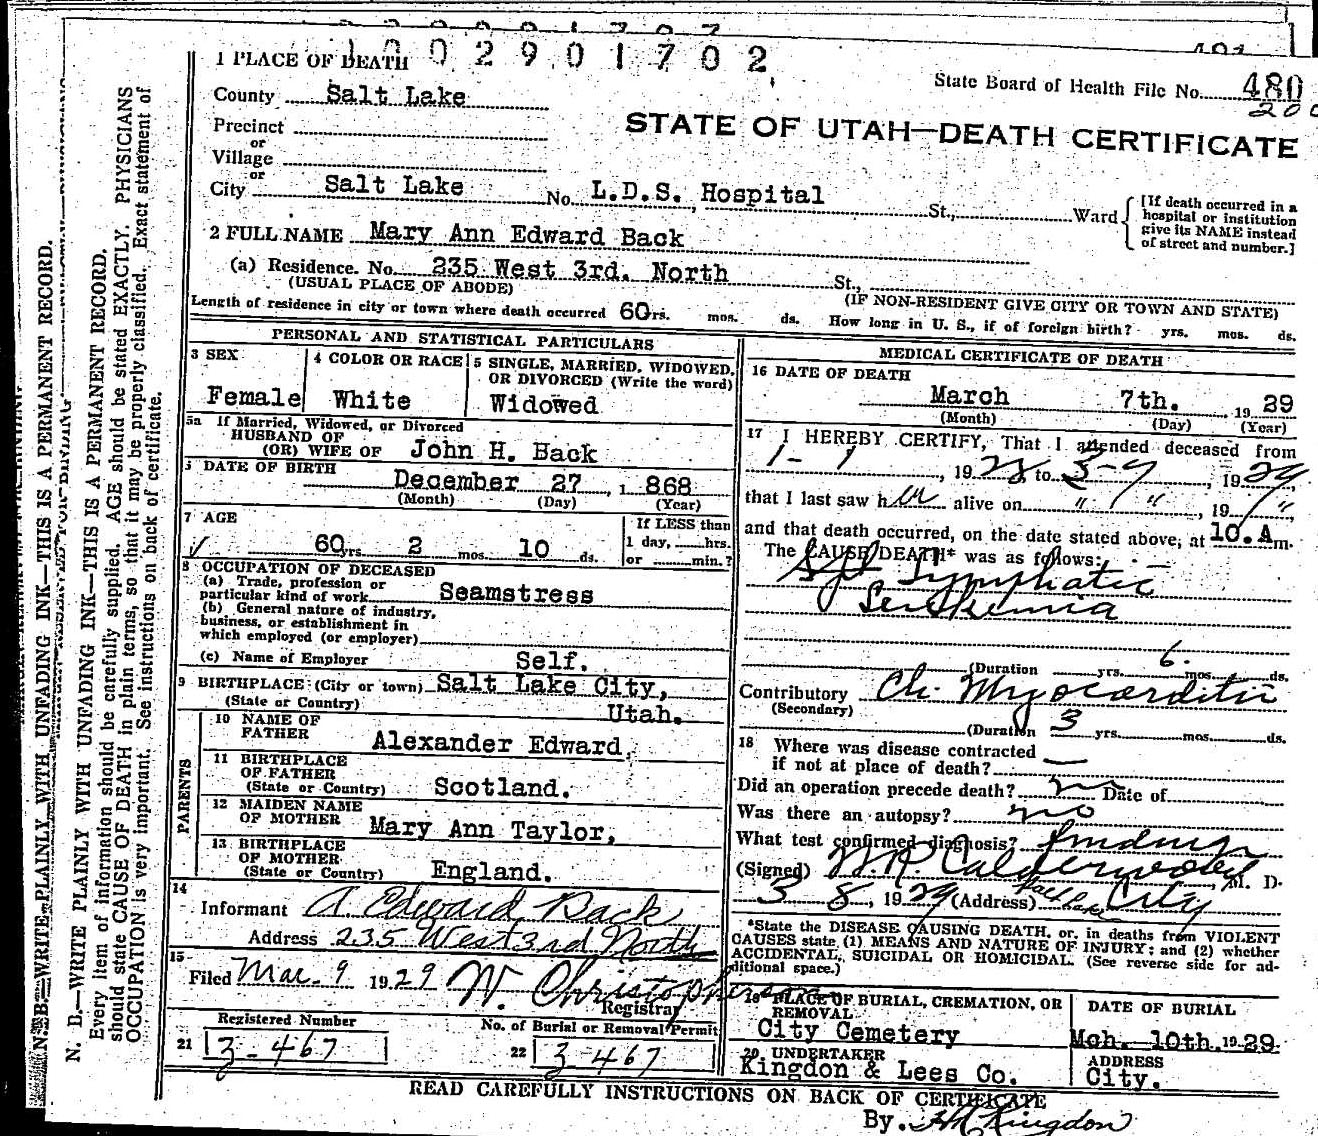 1002901702
1 PLACE OF DEATH
State Board of Health File No. 480
County Salt Lake
STATE OF UTAH—DEATH CERTIFICATE
Precinct
or
Village
or
City Salt Lake No. L.D.S. Hospital St., Ward
[If death occurred in a
hospital or institution
give its NAME instead
of street and number.]
2 FULL NAME Mary Ann Edward Back
(a) Residence. No. 235 West 3rd. North St.,
(USUAL PLACE OF ABODE)
(IF NON-RESIDENT GIVE CITY OR TOWN AND STATE)
Length of residence in city or town where death occurred 60 rs. mos. ds. How long in U. S., if of foreign birth? yrs. mos. ds.
PERSONAL AND STATISTICAL PARTICULARS
3 SEX
Female
4 COLOR OR RACE
White
5 SINGLE, MARRIED, WIDOWED,
OR DIVORCED (Write the word)
Widowed
5a If Married, Widowed, or Divorced
HUSBAND OF
(OR) WIFE OF John H. Back
DATE OF BIRTH
December 27, 1868
(Month) (Day) (Year)
7 AGE
60 yrs. 2 mos. 10 ds.
If LESS than
1 day, hrs.
or min.?
8 OCCUPATION OF DECEASED
(a) Trade, profession or
particular kind of work Seamstress
(b) General nature of industry,
business, or establishment in
which employed (or employer)
(c) Name of Employer Self.
9 BIRTHPLACE (City or town) Salt Lake City,
(State or Country) Utah.
PARENTS
10 NAME OF
FATHER Alexander Edward,
11 BIRTHPLACE
OF FATHER
(State or Country) Scotland.
12 MAIDEN NAME
OF MOTHER Mary Ann Taylor,
13 BIRTHPLACE
OF MOTHER
(State or Country) England.
14
Informant A. Edward Back
Address 235 West 3rd North
15
Filed Mar. 9 1929 W. Christopherson
Registrar
Registered Number
21 3-467
No. of Burial or Removal Permit
22 3-467
MEDICAL CERTIFICATE OF DEATH
16 DATE OF DEATH
March 7th. 1929
(Month) (Day) (Year)
17 I HEREBY CERTIFY, That I attended deceased from
1-1, 1928, to 3-7, 1929
that I last saw h alive on " ", 19 "
and that death occurred, on the date stated above, at 10.A m.
The CAUSE DEATH* was as follows:
Lymphatic
Leukemia
6.
(Duration yrs. mos. ds.
Contributory Ch. Myocarditis
(Secondary)
(Duration 3 yrs. mos. ds.
18 Where was disease contracted
if not at place of death? —
Did an operation precede death? Date of
Was there an autopsy? no
What test confirmed diagnosis?
(Signed) W.R. Calderwood, M. D.
3 8, 1929 (Address) City
*State the DISEASE CAUSING DEATH, or, in deaths from VIOLENT
CAUSES state (1) MEANS AND NATURE OF INJURY; and (2) whether
ACCIDENTAL, SUICIDAL OR HOMICIDAL. (See reverse side for ad-
ditional space.)
19 PLACE OF BURIAL, CREMATION, OR
REMOVAL
City Cemetery
DATE OF BURIAL
Mch. 10th. 1929.
20 UNDERTAKER
Kingdon & Lees Co.
ADDRESS
City.
READ CAREFULLY INSTRUCTIONS ON BACK OF CERTIFICATE
By. Kingdon
N. B.—WRITE PLAINLY WITH UNFADING INK—THIS IS A PERMANENT RECORD.
N. B.—WRITE PLAINLY WITH UNFADING INK—THIS IS A PERMANENT RECORD.
Every item of information should be carefully supplied. AGE should be stated EXACTLY. PHYSICIANS
should state CAUSE OF DEATH in plain terms, so that it may be properly classified. Exact statement of
OCCUPATION is very important. See instructions on back of certificate.